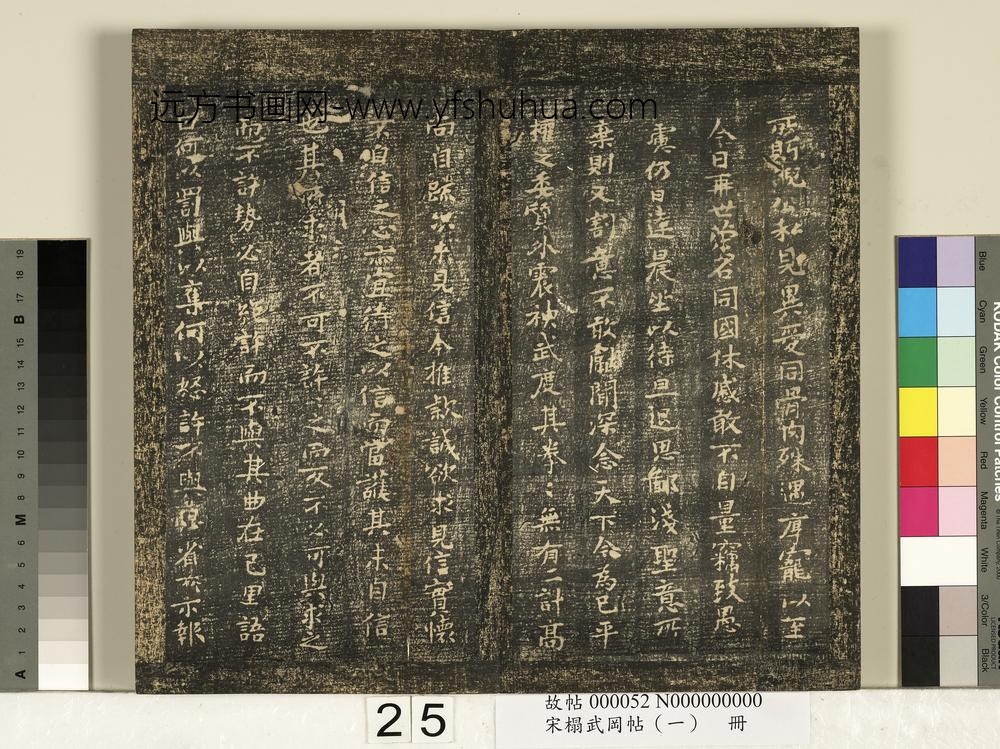 所眄睨公私見異愛同骨肉殊遇厚寵以至
今日再世榮名同國休慼敢不自量竊致愚
慮仍日達晨坐以待旦退思鄙淺聖意所
棄則又割意不敢獻聞深念天下今為已平
權之委質外震神武度其拳〻無有二計高
尚自疏況未見信今推款誠欲求見信實懷
不自信之心亦宜待之以信而當護其未自信
也其所求者不可不許〻之而反不必可與求之
而不許勢必自絕許而不與其曲在己里語
曰何以罰與以奪何以怒許不與思省所示報
远方书画网-www.yfshuhua.com
25
故帖 000052 N000000000
宋榻武岡帖(一) 冊
Blue
Cyan
Green
Yellow
Red
Magenta
White
3/Color
Black
A 1 2 3 4 5 6 M 8 9 10 11 12 13 14 15 B 17 18 19